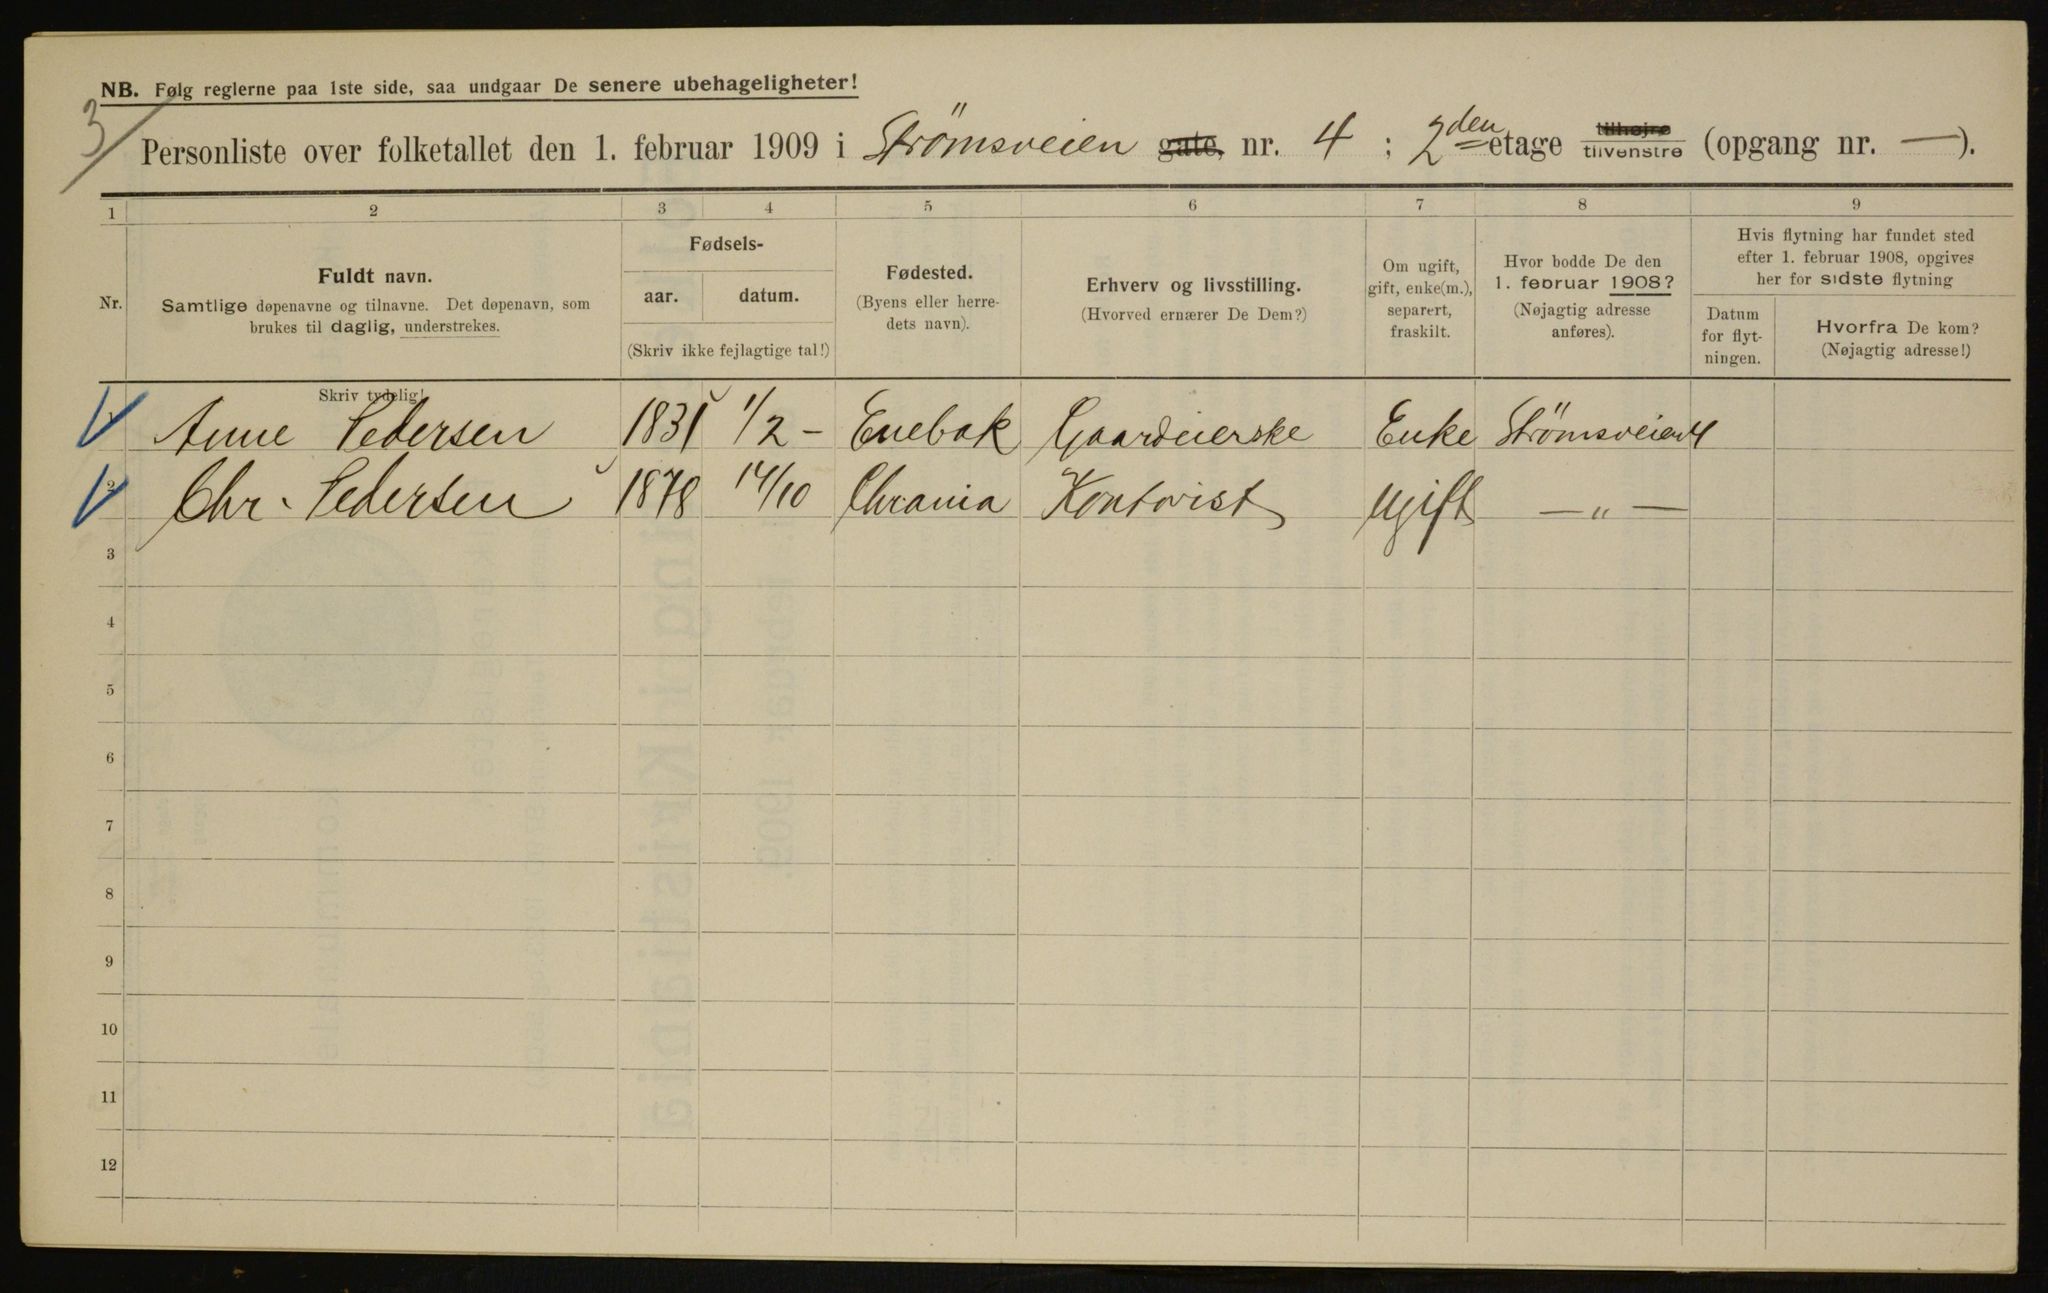 NB. Følg reglerne paa 1ste side, saa undgaar De senere ubehageligheter!
3/
Personliste over folketallet den 1. februar 1909 i Strömsveien gate, nr. 4 ; 2den etage tilhøjre tilvenstre (opgang nr. — ).
1 2 3 4 5 6 7 8 9
Nr.
Fuldt navn.
Samtlige døpenavne og tilnavne. Det døpenavn, som
brukes til daglig, understrekes.
Fødsels-
aar. datum.
(Skriv ikke fejlagtige tal!)
Fødested.
(Byens eller herre-
dets navn).
Erhverv og livsstilling.
(Hvorved ernærer De Dem?)
Om ugift,
gift, enke(m.),
separert,
fraskilt.
Hvor bodde De den
1. februar 1908?
(Nøjagtig adresse
anføres).
Hvis flytning har fundet sted
efter 1. februar 1908, opgives
her for sidste flytning
Datum
for flyt-
ningen.
Hvorfra De kom?
(Nøjagtig adresse!)
Skriv tydelig!
1 Anne Pedersen 1831 1/2 – Enebak Gaardeierske Enke Strömsveien 4
2 Chr. Pedersen 1878 14/10 Chrania Kontorist Ugift — „ —
3
4
5
6
7
8
9
10
11
12